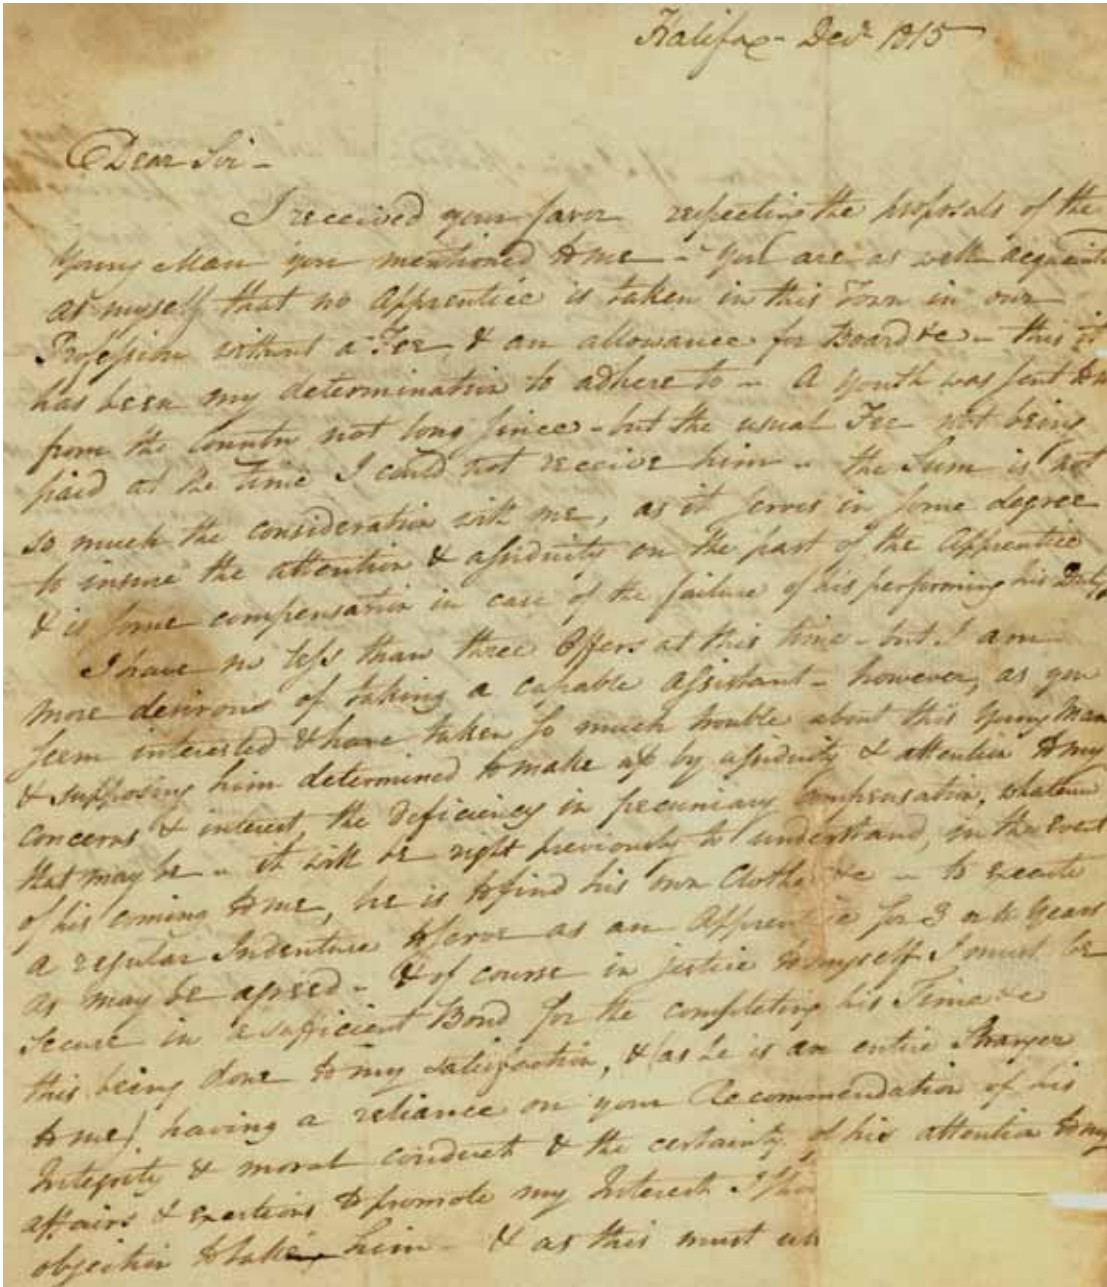 Halifax - Decr 1815
Dear Sir -
I received your favor respecting the proposals of the
Young Man you mentioned to me - You are as well
as myself that no Apprentice is taken in this Town in our
Profession without a Fee & an allowance for Board &c - this it
has been my determination to adhere to - A Youth was sent to
from the Country not long since - but the usual Fee not being
paid at the Time I could not receive him - the Sum is not
so much the consideration with me, as it serves in some degree
to insure the attention & assiduity on the part of the Apprentice
& is some compensation in case of the failure of his performing his Duty
I have no less than three Offers at this time - but I am
more desirous of taking a capable Assistant - however, as you
seem interested & have taken so much trouble about this Young Man
& supposing him determined to make up by assiduity & attention to my
concerns & interest, the deficiency in pecuniary Compensation, whatever
that may be - it will be right previously to understand, in the Event
of his coming to me, he is to find his own Cloths &c - to execute
a regular Indenture to serve as an Apprentice for 3 or 4 Years
as may be agreed - & of course in justice to myself I must be
secure in a sufficient Bond for the completing his Time &c
this being done to my satisfaction, & (as he is an entire Stranger
to me) having a reliance on your Recommendation of his
Integrity & moral conduct & the certainty of his attention to my
affairs & exertions to promote my Interest I
objection to take him - & as this must